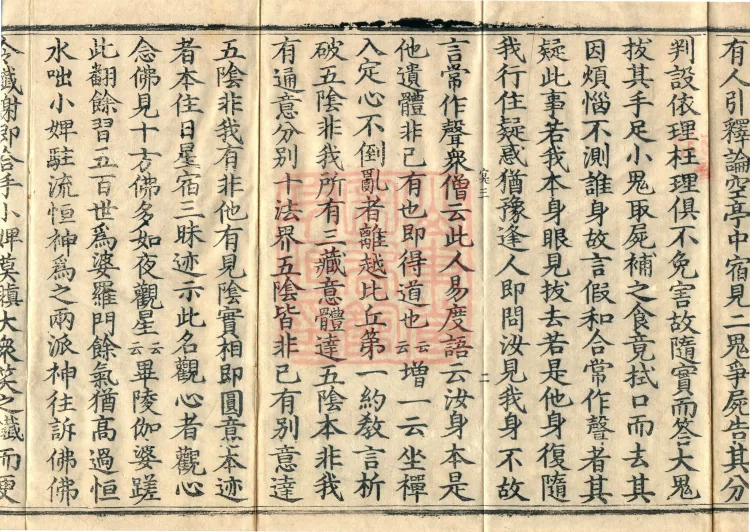 有人引釋論空亭中宿見二鬼爭屍告其分
判設依理枉理俱不免害故隨實而答大鬼
拔其手足小鬼取屍補之食竟拭口而去其
因煩惱不測誰身故言假和合常作聲者其
疑此事若我本身眼見拔去若是他身復隨
我行住疑惑猶豫逢人即問汝見我身不故
言常作聲衆僧云此人易度語云汝身本是
他遺體非己有也即得道也云云增一云坐禪
入定心不倒亂者離越比丘第一約教言析
破五陰非我所有三藏意體達五陰本非我
有通意分別十法界五陰皆非己有別意達
五陰非我有非他有見陰實相即圓意本迹
者本住日星宿三昧迹示此名觀心者觀心
念佛見十方佛多如夜觀星云云畢陵伽婆蹉
此翻餘習五百世爲婆羅門餘氣猶高過恒
水咄小婢駐流恒神爲之兩派神往訴佛佛
令懴謝即合手小婢莫瞋大衆笑之懴而更